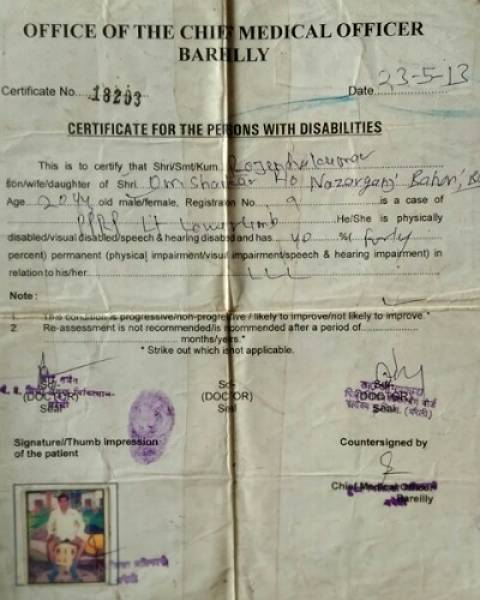 OFFICE OF THE CHIEF MEDICAL OFFICER
BAREILLY
Certificate No. 18203
Date 23-5-13
CERTIFICATE FOR THE PERSONS WITH DISABILITIES
This is to certify that Shri/Smt/Kum Rajendra kumar
tion/wife/daughter of Shri. Om Shankar
Age 20y old male/female, Registraion No. 9 is a case of
PPRP Lt Lowerlimb He/She is physically
disabled/visual disabled/speech & hearing disabed and has 40 %( forty
percent) permanent (physical impairment/visul impairment/speech & hearing impairment) in
relation to his/her LLL
Note :
1. This condition is progressive/non-progretive / likely to improve/not likely to improve.*
2 Re-assessment is not recommended/is recommended after a period of
months/years.*
* Strike out which is not applicable.
Sd-
(DOCTOR)
Seal
Sd-
(DOCTOR)
Seal
Sd-
(DOCTOR)
Seal
Signature//Thumb impression
of the patient
Countersigned by
Chief Medical Officer
Bareilly
बरेली